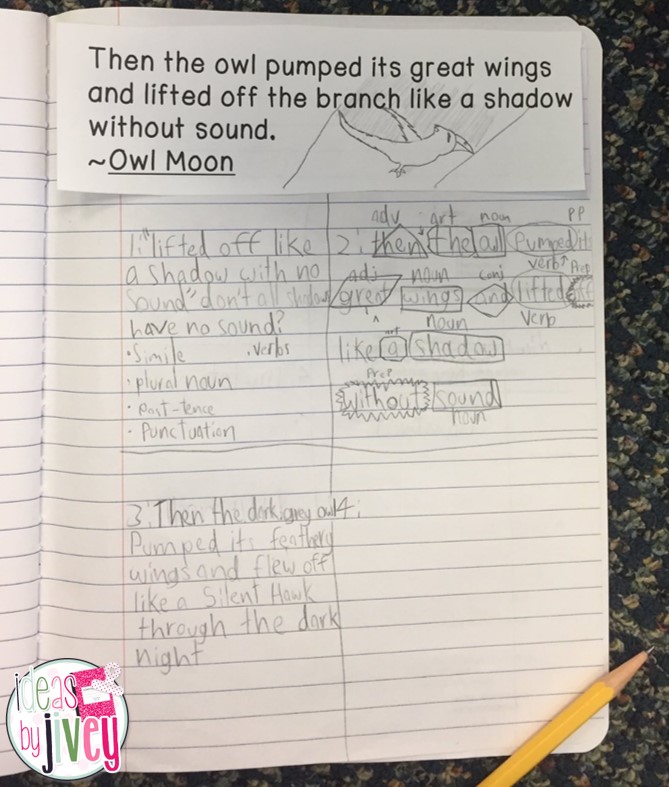 Then the owl pumped its great wings
and lifted off the branch like a shadow
without sound.
~Owl Moon
1. "lifted off like
a shadow with no
sound" don't all shadows
have no sound?
• Simile • verbs
• plural noun
• past-tence
• Punctuation
adv art noun PP
2. then the owl Pumped its
adj noun conj verb Prep
great wings and lifted off
^ art noun Verb
like a shadow
Prep
without sound
noun
3. Then the dark grey owl
Pumped its feathery
wings and flew off
like a Silent Hawk
through the dark
night
4.
ideas
by jivey